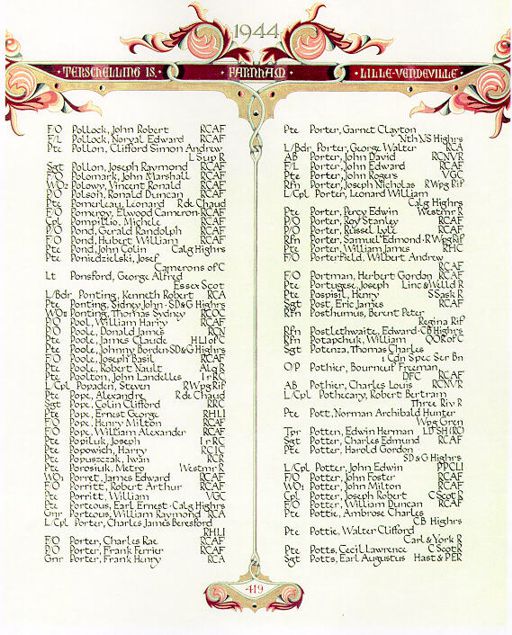 1944
TERSCHELLING IS. · FARNHAM · LILLE-VENDEVILLE
F/O Pollock, John Robert RCAF
F/L Pollock, Norval Edward RCAF
Pte Pollon, Clifford Simon Andrew
L Sup R
Sgt Pollon, Joseph Raymond RCAF
F/O Polomark, John Marshall RCAF
WO2 Polowy, Vincent Ronald RCAF
P/O Polson, Ronald Duncan RCAF
Pte Pomerleau, Leonard R de Chaud
F/O Pomeroy, Elwood Cameron RCAF
Cpl Pompillio, Michele RCAF
P/O Pond, Gerald Randolph RCAF
F/O Pond, Hubert William RCAF
Pte Pond, John Colin Calg Highrs
Pte Poniedzielski, Josef
Camerons of C
Lt Ponsford, George Alfred
Essex Scot
L/Bdr Ponting, Kenneth Robert RCA
Pte Ponting, Sidney John · SD&G Highrs
WO2 Ponting, Thomas Sydney RCOC
P/O Pool, William Harry RCAF
AB Poole, Donald James RCN
Pte Poole, James Claude HLI of C
Pte Poole, Johnny Borden · SD&G Highrs
F/O Poole, Joseph Basil RCAF
Pte Poole, Robert Nault Alq R
Pte Poolton, John Landelles Ir RC
L/Cpl Popaden, Steven R Wpg Rif
Pte Pope, Alexandre R de Chaud
Sgt Pope, Colin Clifford RRC
Pte Pope, Ernest George RHLI
F/O Pope, Henry Milton RCAF
F/O Pope, William Alexander RCAF
Pte Popiluk, Joseph Ir RC
Pte Popowich, Harry RCIC
Pte Popuszczak, Iwan RCR
Pte Porosiuk, Metro Westmr R
WO1 Porret, James Edward RCAF
F/O Porritt, Robert Arthur RCAF
Pte Porritt, William VGC
Pte Porteous, Earl Ernest · Calg Highrs
Gnr Porteous, William Raymond RCA
L/Cpl Porter, Charles James Beresford
RHLI
F/O Porter, Charles Rae RCAF
P/O Porter, Frank Ferrier RCAF
Gnr Porter, Frank Henry RCA
Pte Porter, Garnet Clayton
Nth NS Highrs
L/Bdr Porter, George Walter RCA
AB Porter, John David RCNVR
F/L Porter, John Edward RCAF
Pte Porter, John Rogers VGC
Rfn Porter, Joseph Nicholas R Wpg Rif
L/Cpl Porter, Leonard William
Calg Highrs
Pte Porter, Percy Edwin Westmr R
P/O Porter, Roy Stanley RCAF
P/O Porter, Russel Lyle RCAF
Rfn Porter, Samuel Edmund · R Wpg Rif
Pte Porter, William James RHC
F/O Porterfield, Wilbert Andrew
RCAF
F/O Portman, Herbert Gordon RCAF
Pte Portugese, Joseph Linc & Welld R
Pte Pospisil, Henry S Sask R
Sgt Post, Eric James RCAF
Rfn Posthumus, Berent Peter
Regina Rif
Rfn Postlethwaite, Edward · CB Highrs
Rfn Potapchuk, William QOR of C
Sgt Potenza, Thomas Charles
1 Cdn Spec Ser Bn
O/P Pothier, Bourneuf Freeman
DFC RCAF
AB Pothier, Charles Louis RCNVR
L/Cpl Pothecary, Robert Bertram
Three Riv R
Pte Pott, Norman Archibald Hunter
Wpg Gren
Tpr Potten, Edwin Herman LD SH (RC)
Sgt Potter, Charles Edmund RCAF
Pte Potter, Harold Gordon
SD&G Highrs
L/Cpl Potter, John Edwin PPCLI
F/O Potter, John Foster RCAF
WO1 Potter, John Milton RCAF
Cpl Potter, Joseph Robert C Scot R
F/O Potter, William Duncan RCAF
Pte Pottie, Ambrose Charles
CB Highrs
Pte Pottie, Walter Clifford
Carl & York R
Pte Potts, Cecil Lawrence C Scot R
Sgt Potts, Earl Augustus Hast & PER
419